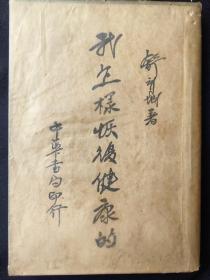 舒新城著
我怎樣恢復健康的
中華書局印行